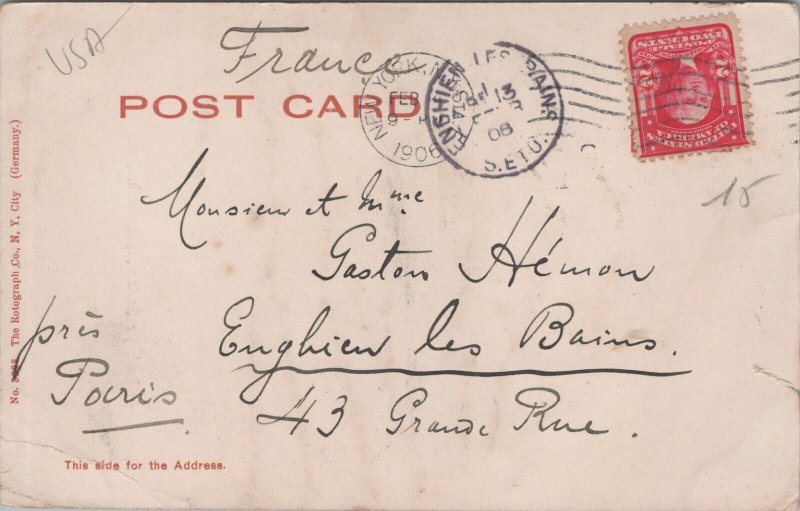 USA
France
POST CARD
NEW YORK, N.
FEB
1906
ENGHIEN LES BAINS
13
06
S. ET O.
2 2
15
Monsieur et Mme
Gaston Hémon
Enghien les Bains.
43 Grande Rue.
près
Paris
This side for the Address.
The Rotograph Co., N. Y. City (Germany.)